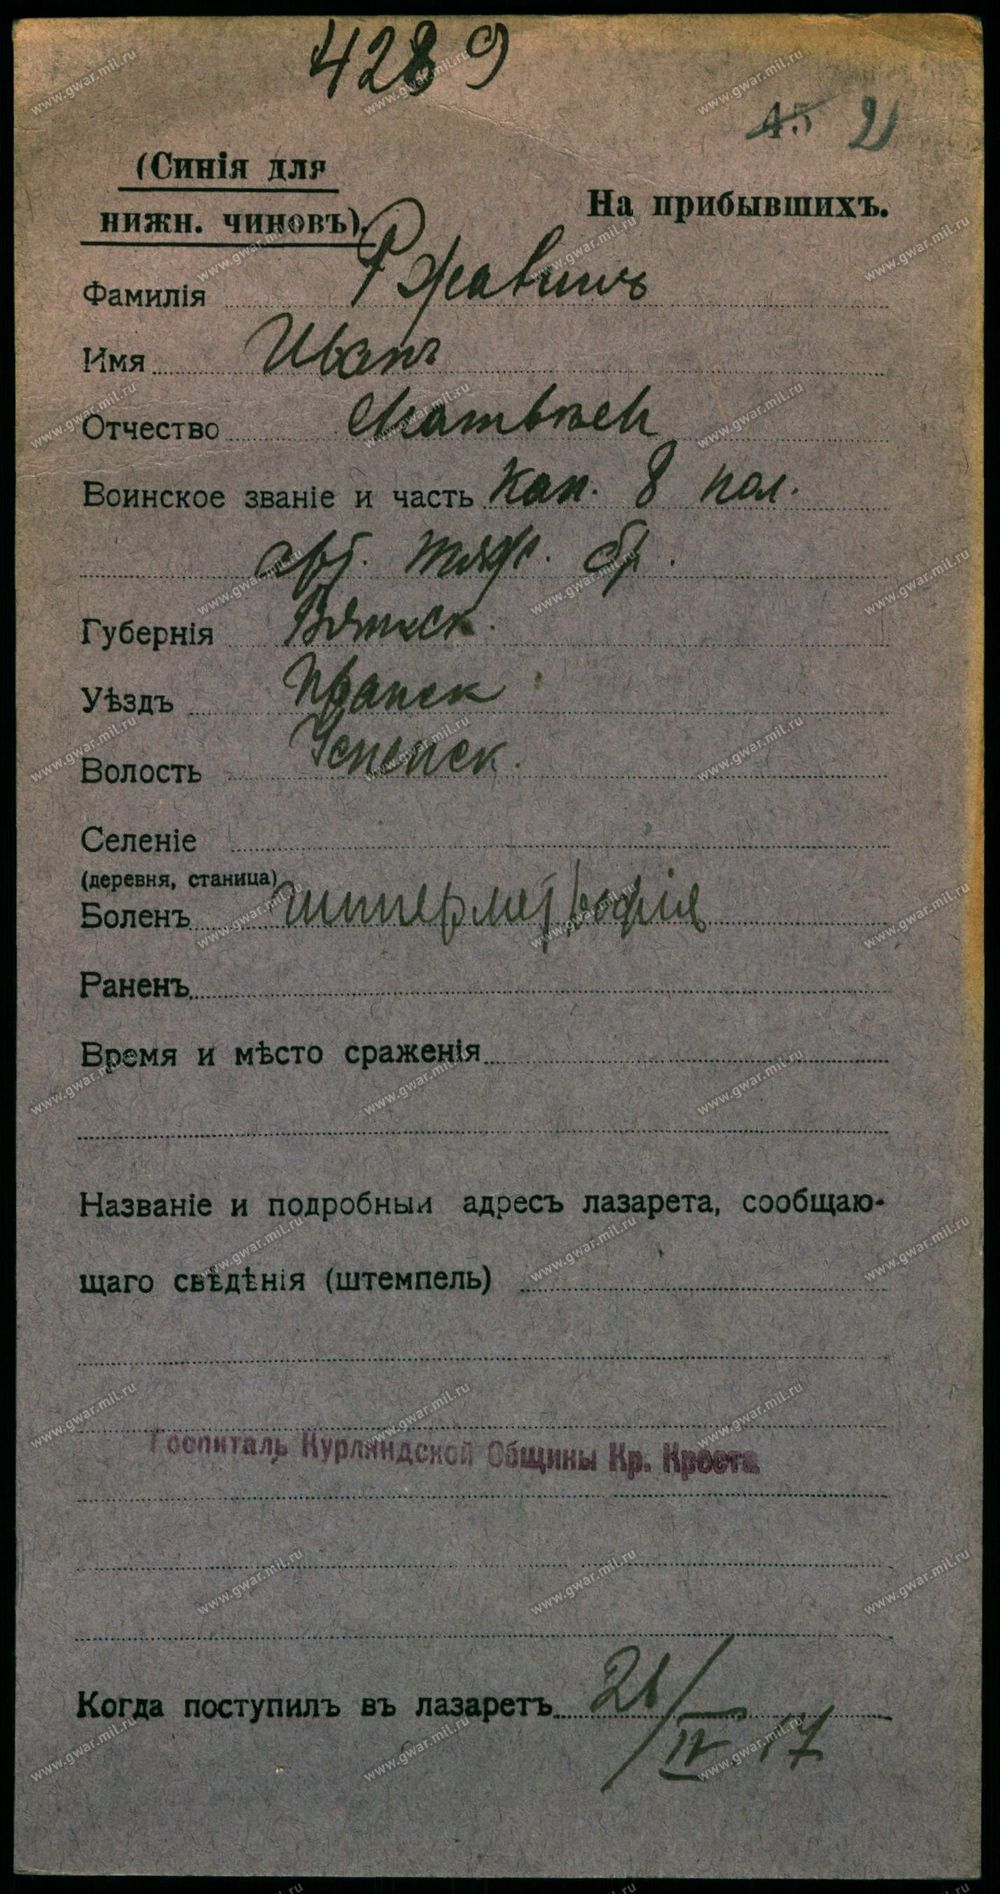 4289
45 21
(Синія для
нижн. чиновъ).
На прибывшихъ.
Фамилія Ржавинъ
Имя Иванъ
Отчество Матвѣев
Воинское званіе и часть Кан. 8 пол.
арт. тяж. бр.
Губернія Вятск.
Уѣздъ Яранск
Волость Успенск.
Селеніе
(деревня, станица)
Боленъ
Раненъ
Время и мѣсто сраженія
Названіе и подробный адресъ лазарета, сообщаю-
щаго свѣдѣнія (штемпель)
Госпиталь Курляндской Общины Кр. Креста
Когда поступилъ въ лазаретъ 21/IV 17
www.gwar.mil.ru